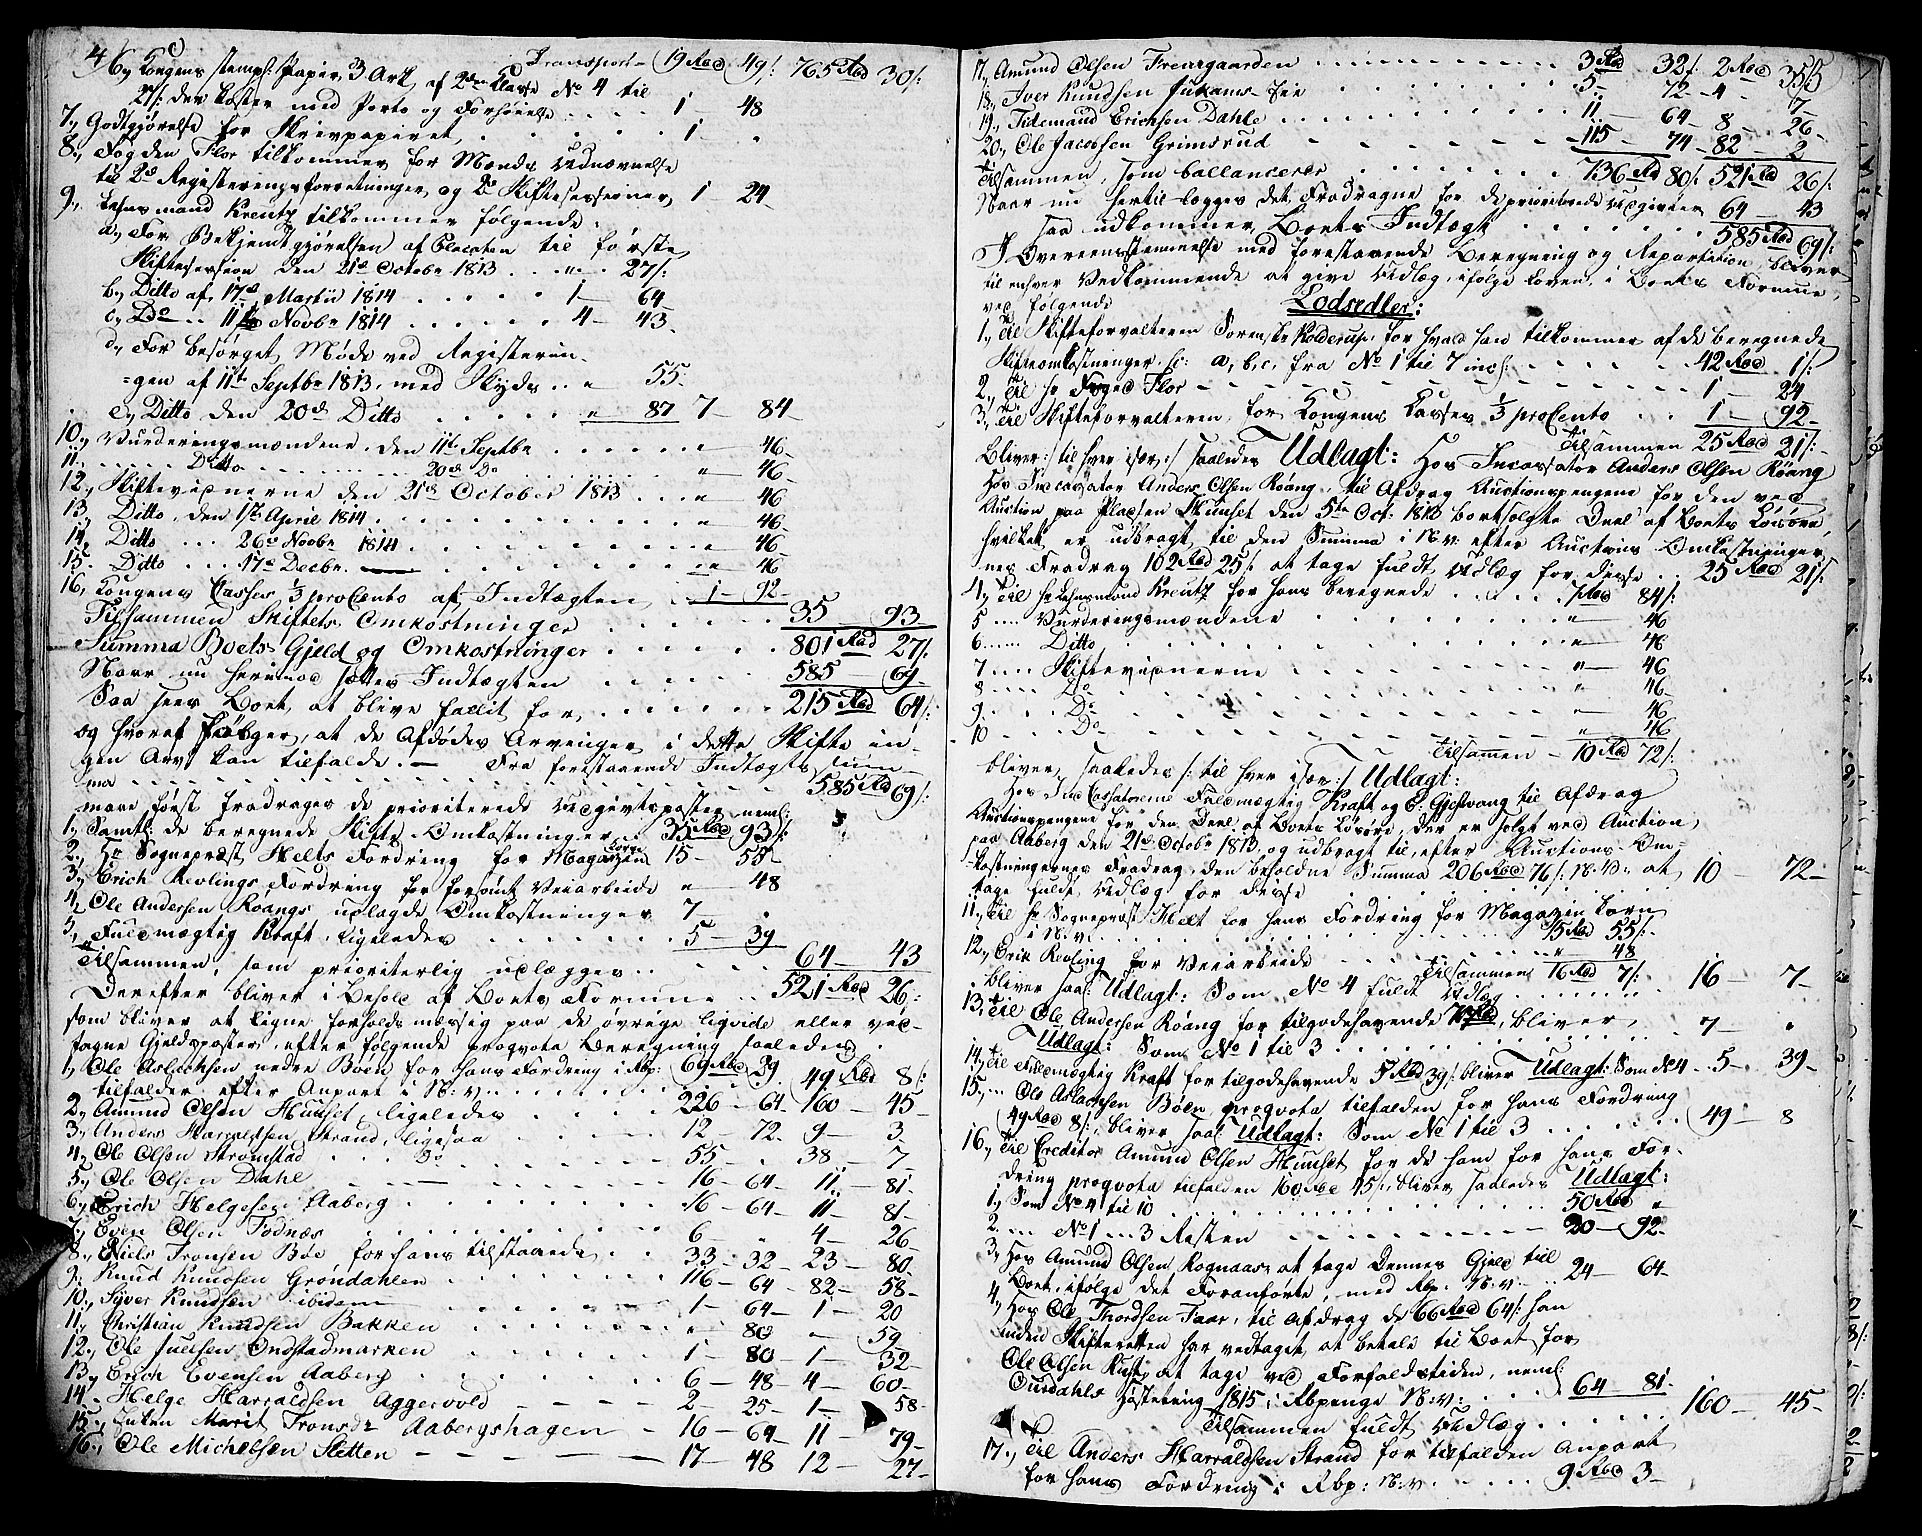 4
Transport 19 Rbd 49 s: 765 Rbd 30 s:
6., Kongens stempl: Papir, 3 Ark af 2den Classe No 4 til
21 s: der koster med Porto og Forhøielse . . . . 1 48
7., Godtgjørelse for Skrivpapiret, . . . . . . 1 - "
8., Fogden Flor tilkommer for Mænds Udnævnelse
til 2de Registeringsforretninger og 2de Skiftesessioner, 1 - 24
9., Lehnsmand Kreutz tilkommer følgende:
a., For Bekjendtgjørelsen af Placaten til første
Skiftesession den 21de Octobr 1813 . . . " . 27 s:
b., Ditto af 17de Martii 1814 . . . . . 1 - 64
c., Do . . 11te Novbr 1814 . . . . . . 4 - 43.
d., For besørget Møde ved Registerin-
=gen af 11te Septbr 1813, med Skyds . . " 55.
e., Ditto den 20de Ditto . . . . . " 87 7 - 84
10., Vurderingsmændene, den 11te Septbr . . . . . . " 46.
11., . . . . . Ditto . . . . . . . . 20de Do . . . . . . " 46.
12., Skiftevidnerne den 21de October 1813 . . . " 46
13. Ditto, den 17. April 1814 . . . . . . . . . . . " 46.
14. Ditto . . . 26de Novbr 1814 . . . . . . . . . " 46
15. Ditto . . . 17de Decbr. . . . . . . . . . " 46
16, Kongens Casse, 1/3 proCento af Indtægten . . 1 - 92
Tilsammen Skiftets Omkostninger . . . . . . 35 - 93
Summa Boets Gjeld og Omkostninger . . . . . . 801 Rbd 27 s:
Naar nu herimod sættes Indtægten . . . . . . 585 - 69
Saa sees Boet at blive fallit for, . . . . . . 215 Rbd 64 s:
og hvoraf følger, at de Afdødes Arvinger i dette Skifte in-
gen Arv kan tilfalde. — Fra forestaaende Indtægts Sum-
ma . . . . . . . . . . . . 585 Rbd 69 s:
maae først fradrages de prioriterede Udgivtsposter, neml:
1., Samtl: de beregnede Skifte-Omkostninger . . 35 Rbd 93 s:
2., Hr Sognepræst Helts Fordring for Magazin Korn 15 - 55
3., Erich Revlings Fordring for forsømt Veiarbeide " - 48
4., Ole Andersen Roangs udlagde Omkostninger 7 - "
5., Fuldmægtig Kraft, ligeledes . . . . . . . 5 - 39
Tilsammen, som prioriterlig udlægges . . . . . 64 - 43
Derefter bliver i Behold af Boets Formue . . 521 Rbd 26 s:
som bliver at ligne forholdsmæssig paa de øvrige liqvide eller ved-
tagne Gjeldsposter, efter følgende proqvota Beregning saaledes:
1., Ole Aslachsen nedre Bøen for hans Fordring i Rbp: 69 Rbd 29 49 Rbd 8 s:
tilfalder efter Anpart i N:v: . . . . . . .
2., Amund Olsen Huuset, ligeledes . . . . . . 226 - 64 160 - 45
3., Anders Harraldsen Strand, ligesaa . . . . . 12 - 72 9 - 3
4., Ole Olsen Strømstad . . . do . . . . . . 55 - . 38 - 7
5., Ole Olsen Dahl . . . . . . . . . 16 - 64 11 - 81.
6., Erich Helgesen Aaberg . . . . . . . . 16 - 64 - 11 - 81-
7., Even Olsen Fodnæs . . . . . . . . . 6 - . 4 - 26
8., Niels Tronsen Bøe for hans tilstaaede . . 33 - 32 - 23 - 80.
9., Knud Knudsen Grøndahlen . . . . . . . 116 - 64 - 82 - 58-
10., Syver Knudsen ibidem . . . . . . . . 1 - 64 - 1 - 20
11., Christian Knudsen Bakken . . . . . . . " 80 - " - 59
12., Ole Juelsen Ondstadmarken . . . . . . . 1 - 80 - 1 - 32-
13., Erich Evensen Aaberg . . . . . . . . 6 - 48 - 4 - 60-
14. Helge Harraldsen Aggervold . . . . . . 2 - 25 - 1 - 58-
15., Enken Marit Tronsdr Aabergshagen . . . 16 - 64 - 11 - 79-
16., Ole Michelsen Sletten . . . . . . . 17 - 48 12 - 27-
17., Amund Olsen Frensgaarden . . . . . . . . 3 Rbd 32 s: 2 Rbd 35 s
18., Iver Knudsen . . . . . . . . 5 - 72 - 4 - 7-
19., Tidemand Erichsen Dahle . . . . . . . . 11 - 64 - 8 - 26-
20., Ole Jacobsen Grimsrud . . . . . . . . 115 - 74 - 82 - 2
Tilsammen, som ballancerer . . . . . . . . 736 Rbd 80 s: 521 Rbd 26 s:
Naar nu hertil lægges det Fradragne for de prioriterede Udgivter 64 - 43
saa udkommer Boets Indtægt . . . . . . . . 585 Rbd 69 s:
I Overeensstemmelse med forestaaende Beregning og Repartition, bliver
til enhver Vedkommende at give Udlæg, ifølge Loven, i Boets Formue,
ved følgende
Lodsedler:
1., Til Skifteforvalteren Sorenskr Kolderup, for hvad han tilkommer af de beregnede
Skifteomkostninger, sc: a, b, c, fra No 1 til 7 incl: . . . . . . . 42 Rbd 1 s:
2., Til Hr Foged Flor . . . . . . . . . . 1 - 24
3., Til Skifteforvalteren, for Kongens Casse, 1/3 proCento . . . 1 - 92-
Tilsammen 25 Rbd 21 s:
Bliver /: til hver især :/ saaledes Udlagt: Hos Incassator Anders Olsen Roang
Hos Incassator Anders Olsen Roang, til Afdrag Auctionspengene for den ved
Auction paa Pladsen Huuset den 5te Oct: 1813 bortsolgte Deel af Boets Løsøre,
hvilket er udbragt til den Summa i N:v: efter Auctions Omkostninger-
nes Fradrag 102 Rbd 25 s: at tage fuldt Udlæg for disse . . 25 Rbd 21 s:
4., Til Hr Lehnsmand Kreutz for hans beregnede . . . . . 7 Rbd 84 s:
5 . . . . Vurderingsmændene . . . . . . " - 46
6 . . . . Ditto . . . . . . . . " - 46
7 . . . . Skiftevidnerne . . . . . . . " - 46
8 . . . . Do . . . . . . . " - 46-
9 . . . . Do . . . . . . . " - 46
10 . . . . Do . . . . . . . " - 46
Tilsammen - 10 Rbd 72 s:
bliver saaledes /: til hver især :/ Udlagt:
Hos Incassatorerne Fuldmægtig Kraft og E. Gjestvang til Afdrag
Auctionspengene for den Deel af Boets Løsøre, der er solgt ved Auction
paa Aaberg den 21de Octobr 1813, og udbragt til, efter Auctions-Om-
kostningernes Fradrag, den beholdne Summa 206 Rbd 76 s: N:v: at
tage fuldt Udlæg for disse . . . . . . . . . 10 - 72-
11., Til Hr Sognepræst Helt for hans Fordring for Magazin Korn
i N:v: . . . . . . . . . . 15 Rbd 55 s:
12., Erik Revling for Veiarbeide . . . . . . . " 48
Tilsammen 16 Rbd 7 s:
bliver saal: Udlagt: Som No 4 fuldt Udlæg . . . . . . 16 - 7-
13., Til Ole Andersen Roang for tilgodehavende 7 Rbd, bliver
Udlagt: Som No 1 til 3 . . . . . . . . . 7 - "
14., Til Fuldmægtig Kraft for tilgodehavende 5 Rbd 39 s: bliver Udlagt: Som de 4 . 5 - 39-
15., . . . Ole Aslachsen Bøen proqvota tilfalden for hans Fordring
49 Rbd 8 s:, bliver saal: Udlagt: Som No 1 til 3 . . . . . 49 - 8
16., Til Creditor Amund Olsen Huuset for de ham for hans For-
dring proqvota tilfalden 160 Rbd 45 s:, bliver saaledes Udlagt:
1., Som No 4 til 10 . . . . . . . . . . 50 Rbd "
2. . . . No 1 . . . 3 Resten . . . . . . . . 20 - 92-
3., Hos Amund Olsen Rognaas, at tage Dennes Gjeld til
Boet, ifølge det Foranførte, med Rbp. N:v: . . 24 - 64-
4., Hos Ole Thordsen Faar, til Afdrag de 66 Rbd 64 s: han
inden Skifteretten har vedtaget at betale til Boet for
Ole Olsen Rust, at tage ved Forfaldstiden, neml:
Ourdahls Høstething 1815, i Rbpenge N:v: . . . . 64 - 81.
Tilsammen fuldt Udlæg . . . . . . 160 - 45-
17., Til Anders Harraldsen Strand for tilfalden Anpart
for hans Fordring i Rbp: N:v: . . . . . . 9 Rbd 3-